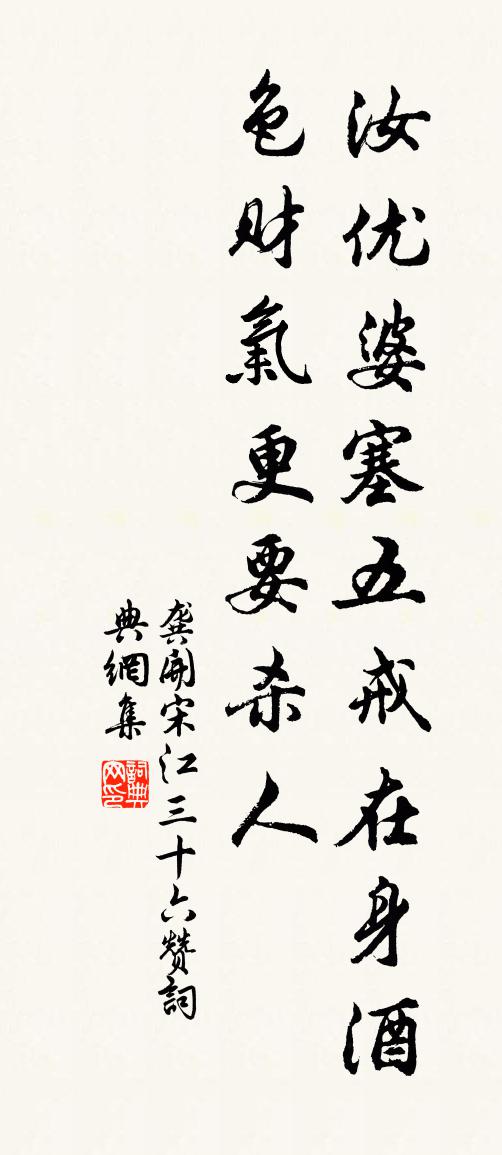 汝优婆塞五戒在身酒
色财氣更要杀人
龚開宋江三十六赞詞
典網集
詞典网印